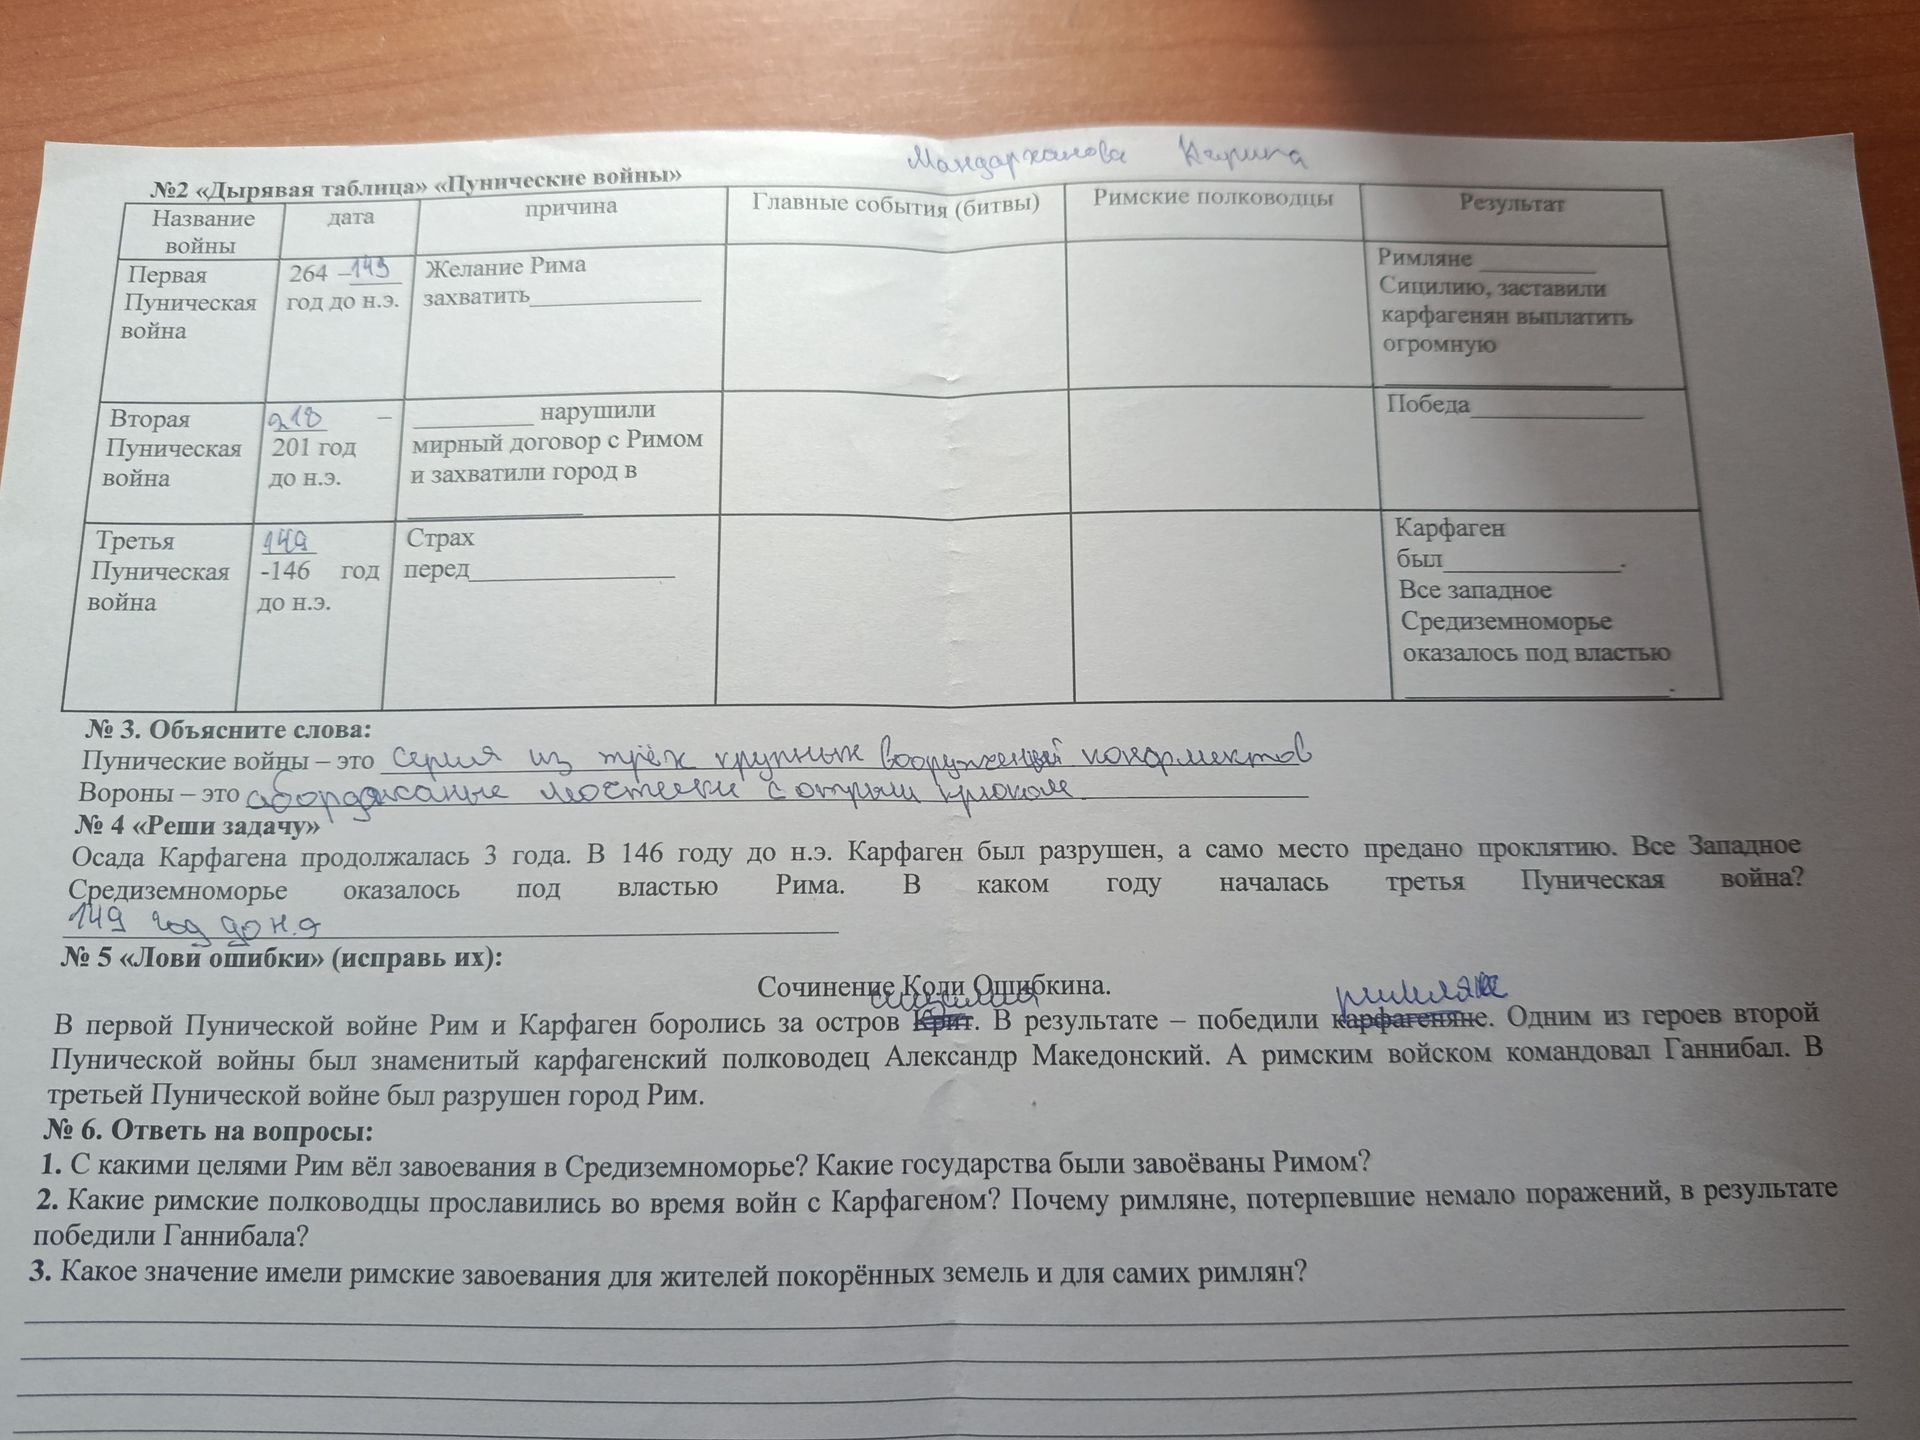 Мандарханова Карина
№2 «Дырявая таблица» «Пунические войны»
Название войны | дата | причина | Главные события (битвы) | Римские полководцы | Результат
Первая
Пуническая
война
264 –149
год до н.э.
Желание Рима
захватить_____________
Римляне _________
Сицилию, заставили
карфагенян выплатить
огромную
_________________
Вторая
Пуническая
война
218 –
201 год
до н.э.
_________ нарушили
мирный договор с Римом
и захватили город в
_____________
Победа_____________
Третья
Пуническая
война
149
-146 год
до н.э.
Страх
перед________________
Карфаген
был______________.
Все западное
Средиземноморье
оказалось под властью
____________________.
№ 3. Объясните слова:
Пунические войны – это серия из трёх крупных вооруженный конфликтов
Вороны – это абордажаные мостики с отрым крюком
№ 4 «Реши задачу»
Осада Карфагена продолжалась 3 года. В 146 году до н.э. Карфаген был разрушен, а само место предано проклятию. Все Западное
Средиземноморье оказалось под властью Рима. В каком году началась третья Пуническая война?
149 год до н.э
№ 5 «Лови ошибки» (исправь их):
Сочинение Коли Ошибкина.
сицилия римляне
В первой Пунической войне Рим и Карфаген боролись за остров Крит. В результате – победили карфагеняне. Одним из героев второй
Пунической войны был знаменитый карфагенский полководец Александр Македонский. А римским войском командовал Ганнибал. В
третьей Пунической войне был разрушен город Рим.
№ 6. Ответь на вопросы:
1. С какими целями Рим вёл завоевания в Средиземноморье? Какие государства были завоёваны Римом?
2. Какие римские полководцы прославились во время войн с Карфагеном? Почему римляне, потерпевшие немало поражений, в результате
победили Ганнибала?
3. Какое значение имели римские завоевания для жителей покорённых земель и для самих римлян?